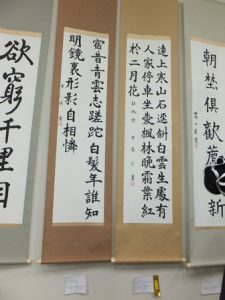 朝埜俱歡薦新
遠上寒山石逕斜白雲生處有
人家停車坐愛楓林晚霜葉紅
於二月花
宿昔青雲志蹉跎白髮年誰知
明鏡裏形影自相憐
欲窮千里目